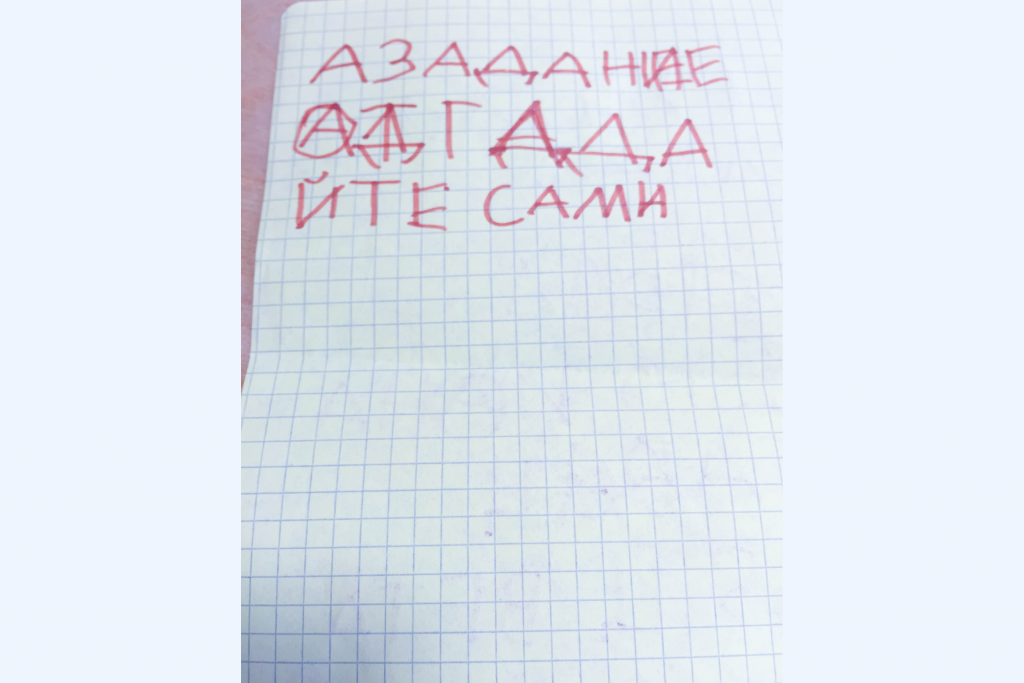 АЗАДАНИЕ
ОТГАДА
ЙТЕ САМИ